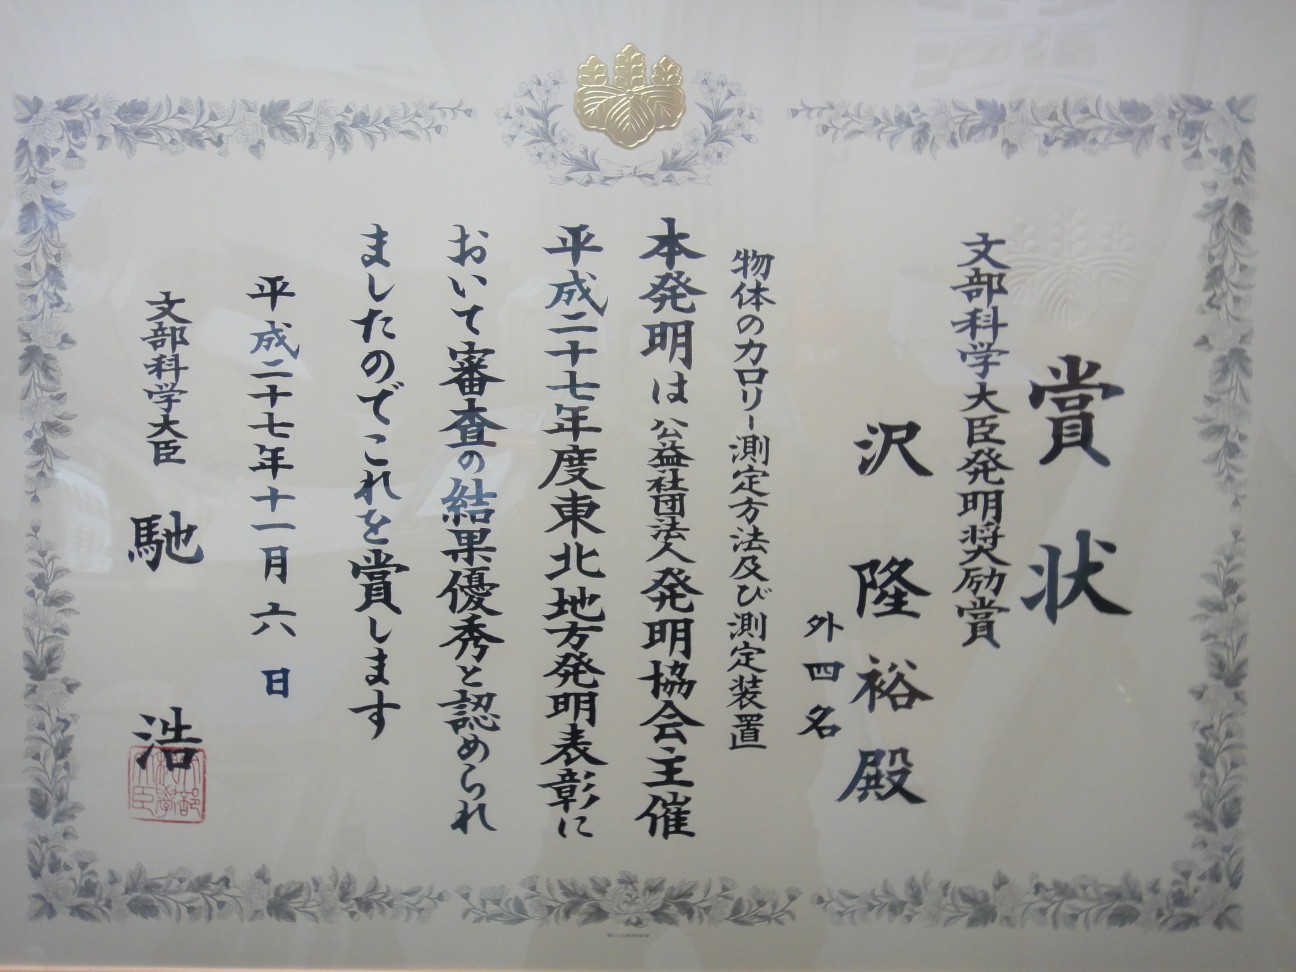 賞状
文部科学大臣発明奨励賞
沢隆裕殿
外四名
物体のカロリー測定方法及び測定装置
本発明は公益社団法人発明協会主催
平成二十七年度東北地方発明表彰に
おいて審査の結果優秀と認められ
ましたのでこれを賞します
平成二十七年十一月六日
文部科学大臣 馳浩